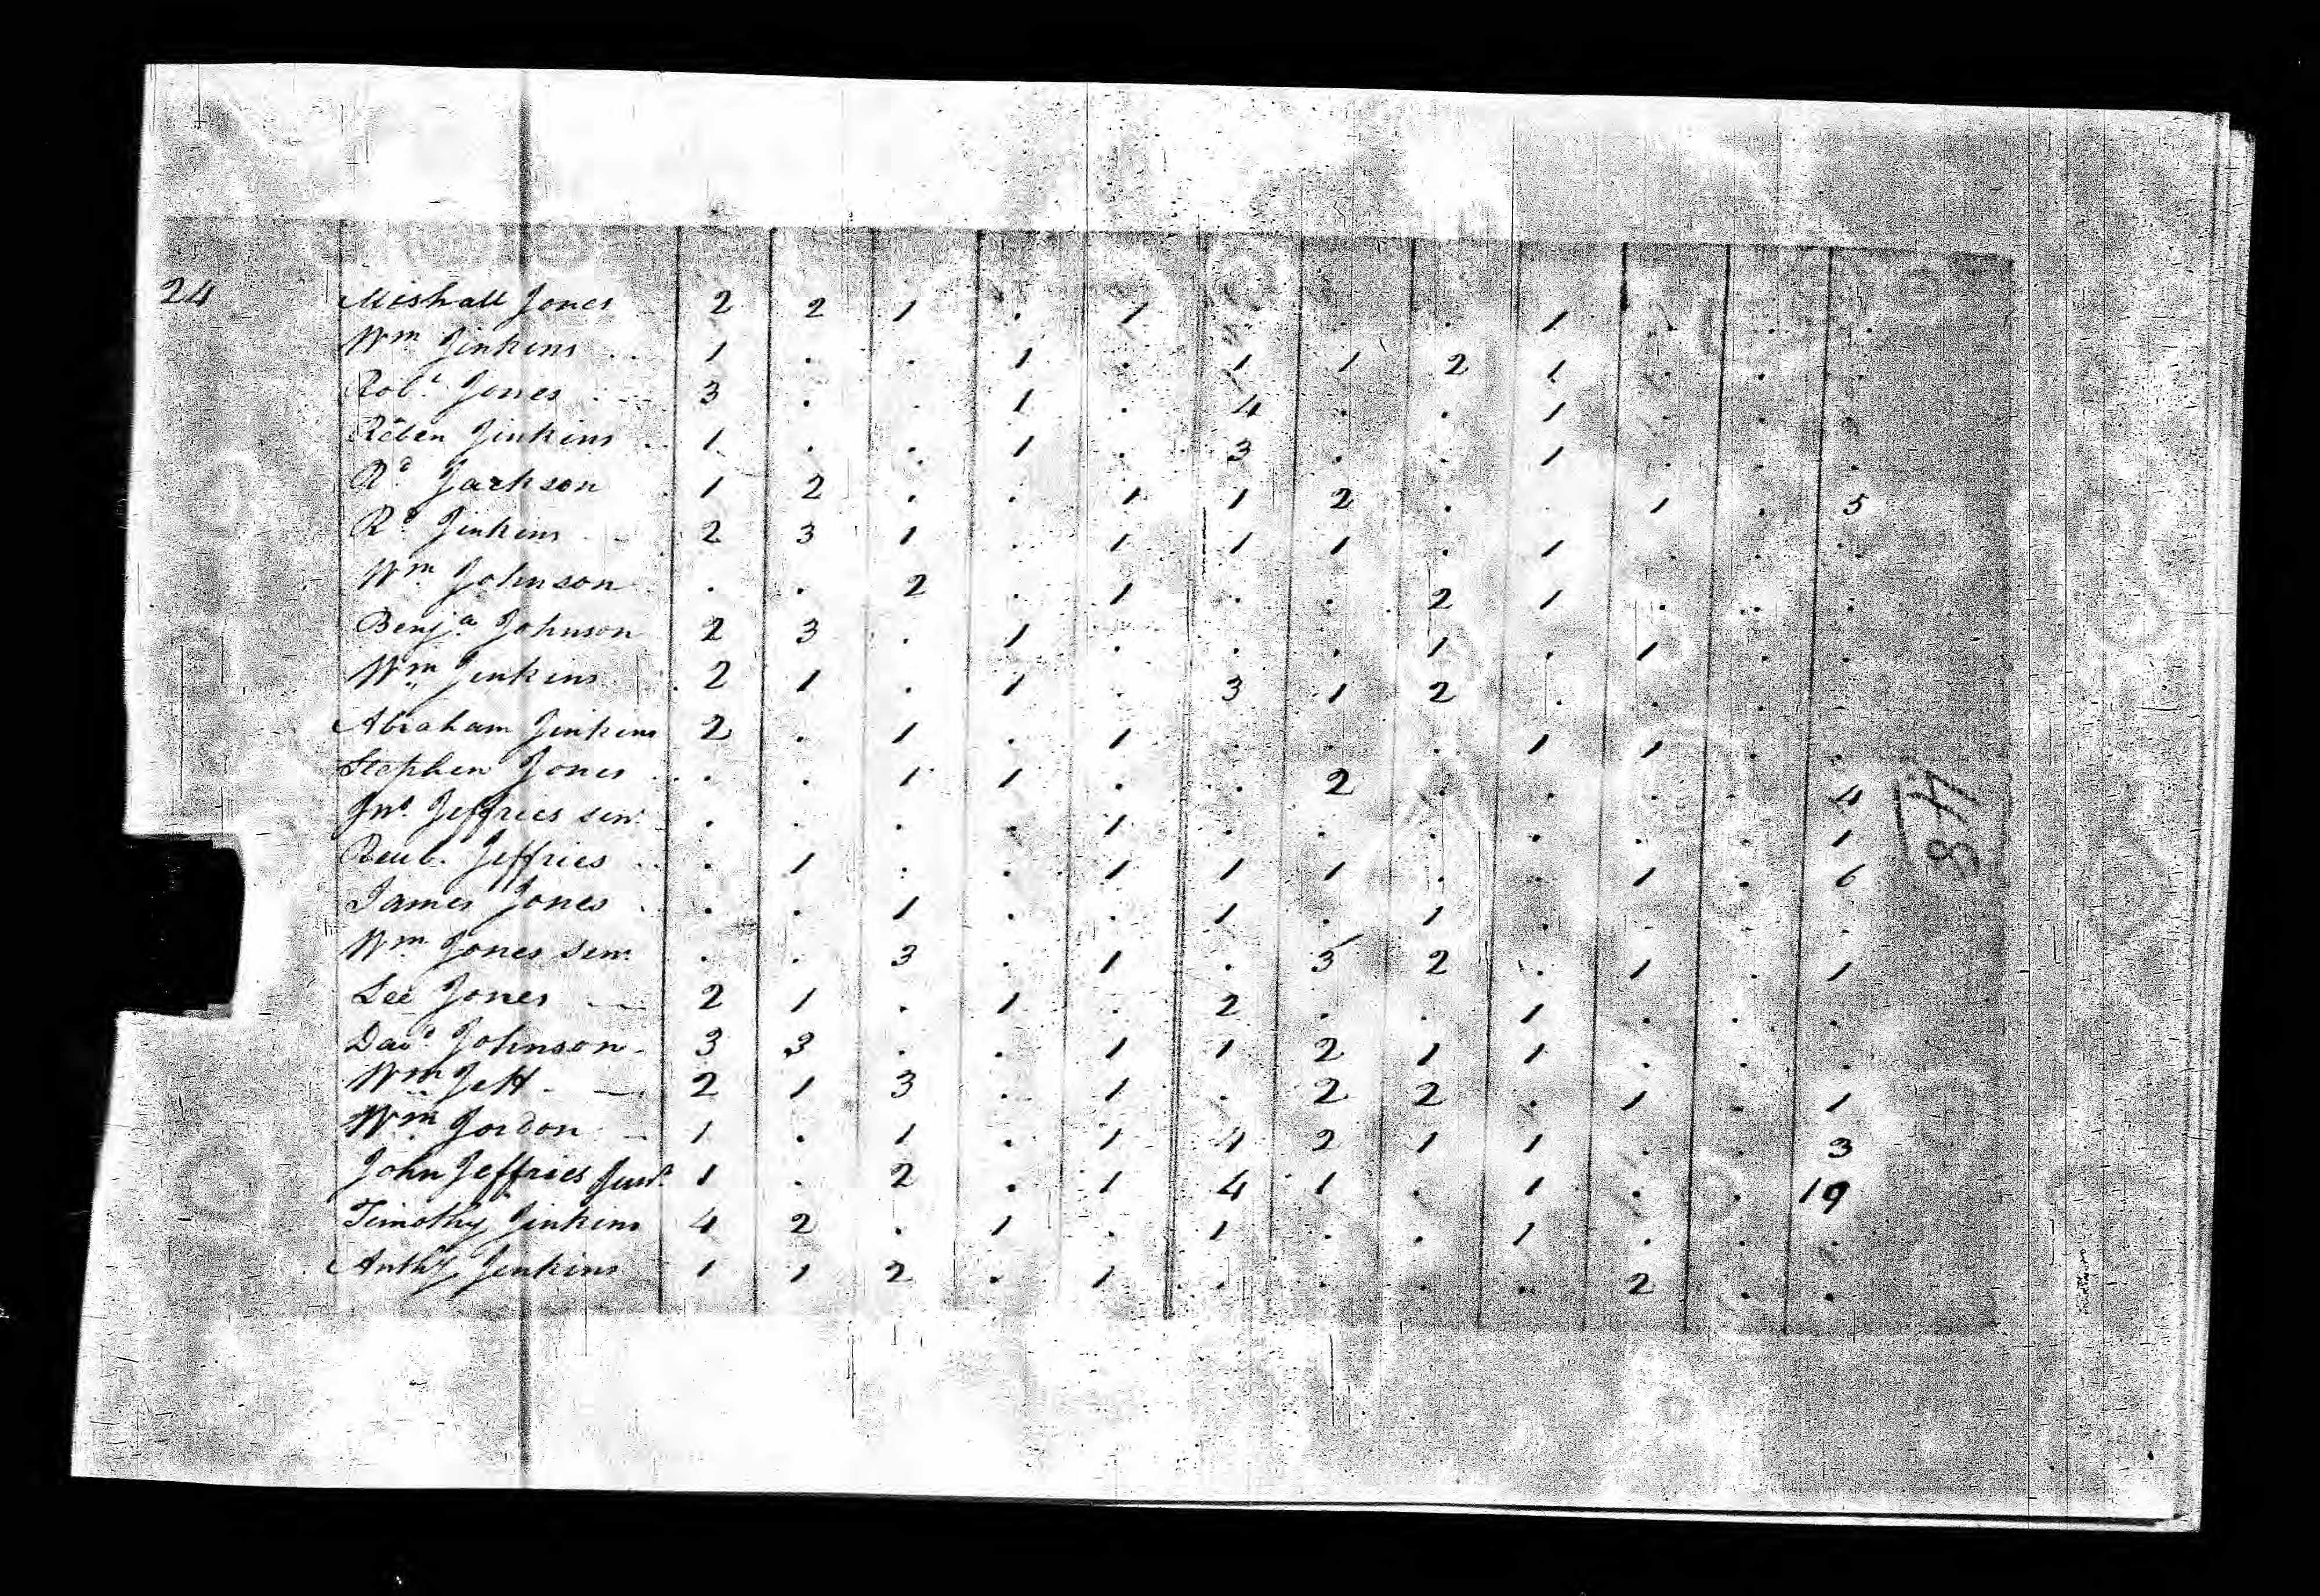 24
Mishall Jones 2 2 1 . 1 . . . 1 . . .
Wm Jinkins 1 . . 1 . 1 1 2 1 . . .
Robt. Jones 3 . . 1 . 4 . . 1 . . .
Reben Jinkins 1 . . 1 . 3 . . 1 . . .
Rd Jackson 1 2 . . 1 1 2 . . 1 . 5
Rd Jinkins 2 3 1 . 1 1 1 . 1 . . .
Wm Johnson . . 2 . 1 . . 2 1 . . .
Benja Johnson 2 3 . 1 . . . 1 . 1 . .
Wm Jenkins 2 1 . 1 . 3 1 2 . . . .
Abraham Jinkins 2 . 1 . 1 . . . 1 1 . .
Stephen Jones . . 1 1 . . 2 . . . . 4
Jno. Jeffries senr. . . . . 1 . . . . . . 1
Reub. Jeffries . 1 . . 1 1 1 . . 1 . 6
James Jones . . 1 . . 1 . 1 . . . .
Wm Jones Senr . . 3 . 1 . 3 2 . 1 . 1
Lee Jones 2 1 . 1 . 2 . . 1 . . .
Davd. Johnson 3 3 . . 1 1 2 1 1 . . .
Wm Jett 2 1 3 . 1 . 2 2 . 1 . 1
Wm Jordon 1 . 1 . 1 4 2 1 1 . . 3
John Jeffries Junr. 1 . 2 . 1 4 1 . 1 . . 19
Timothy Jinkins 4 2 . 1 . 1 . . 1 . . .
Anthy. Jenkins 1 1 2 . 1 . . . . 2 . .
48